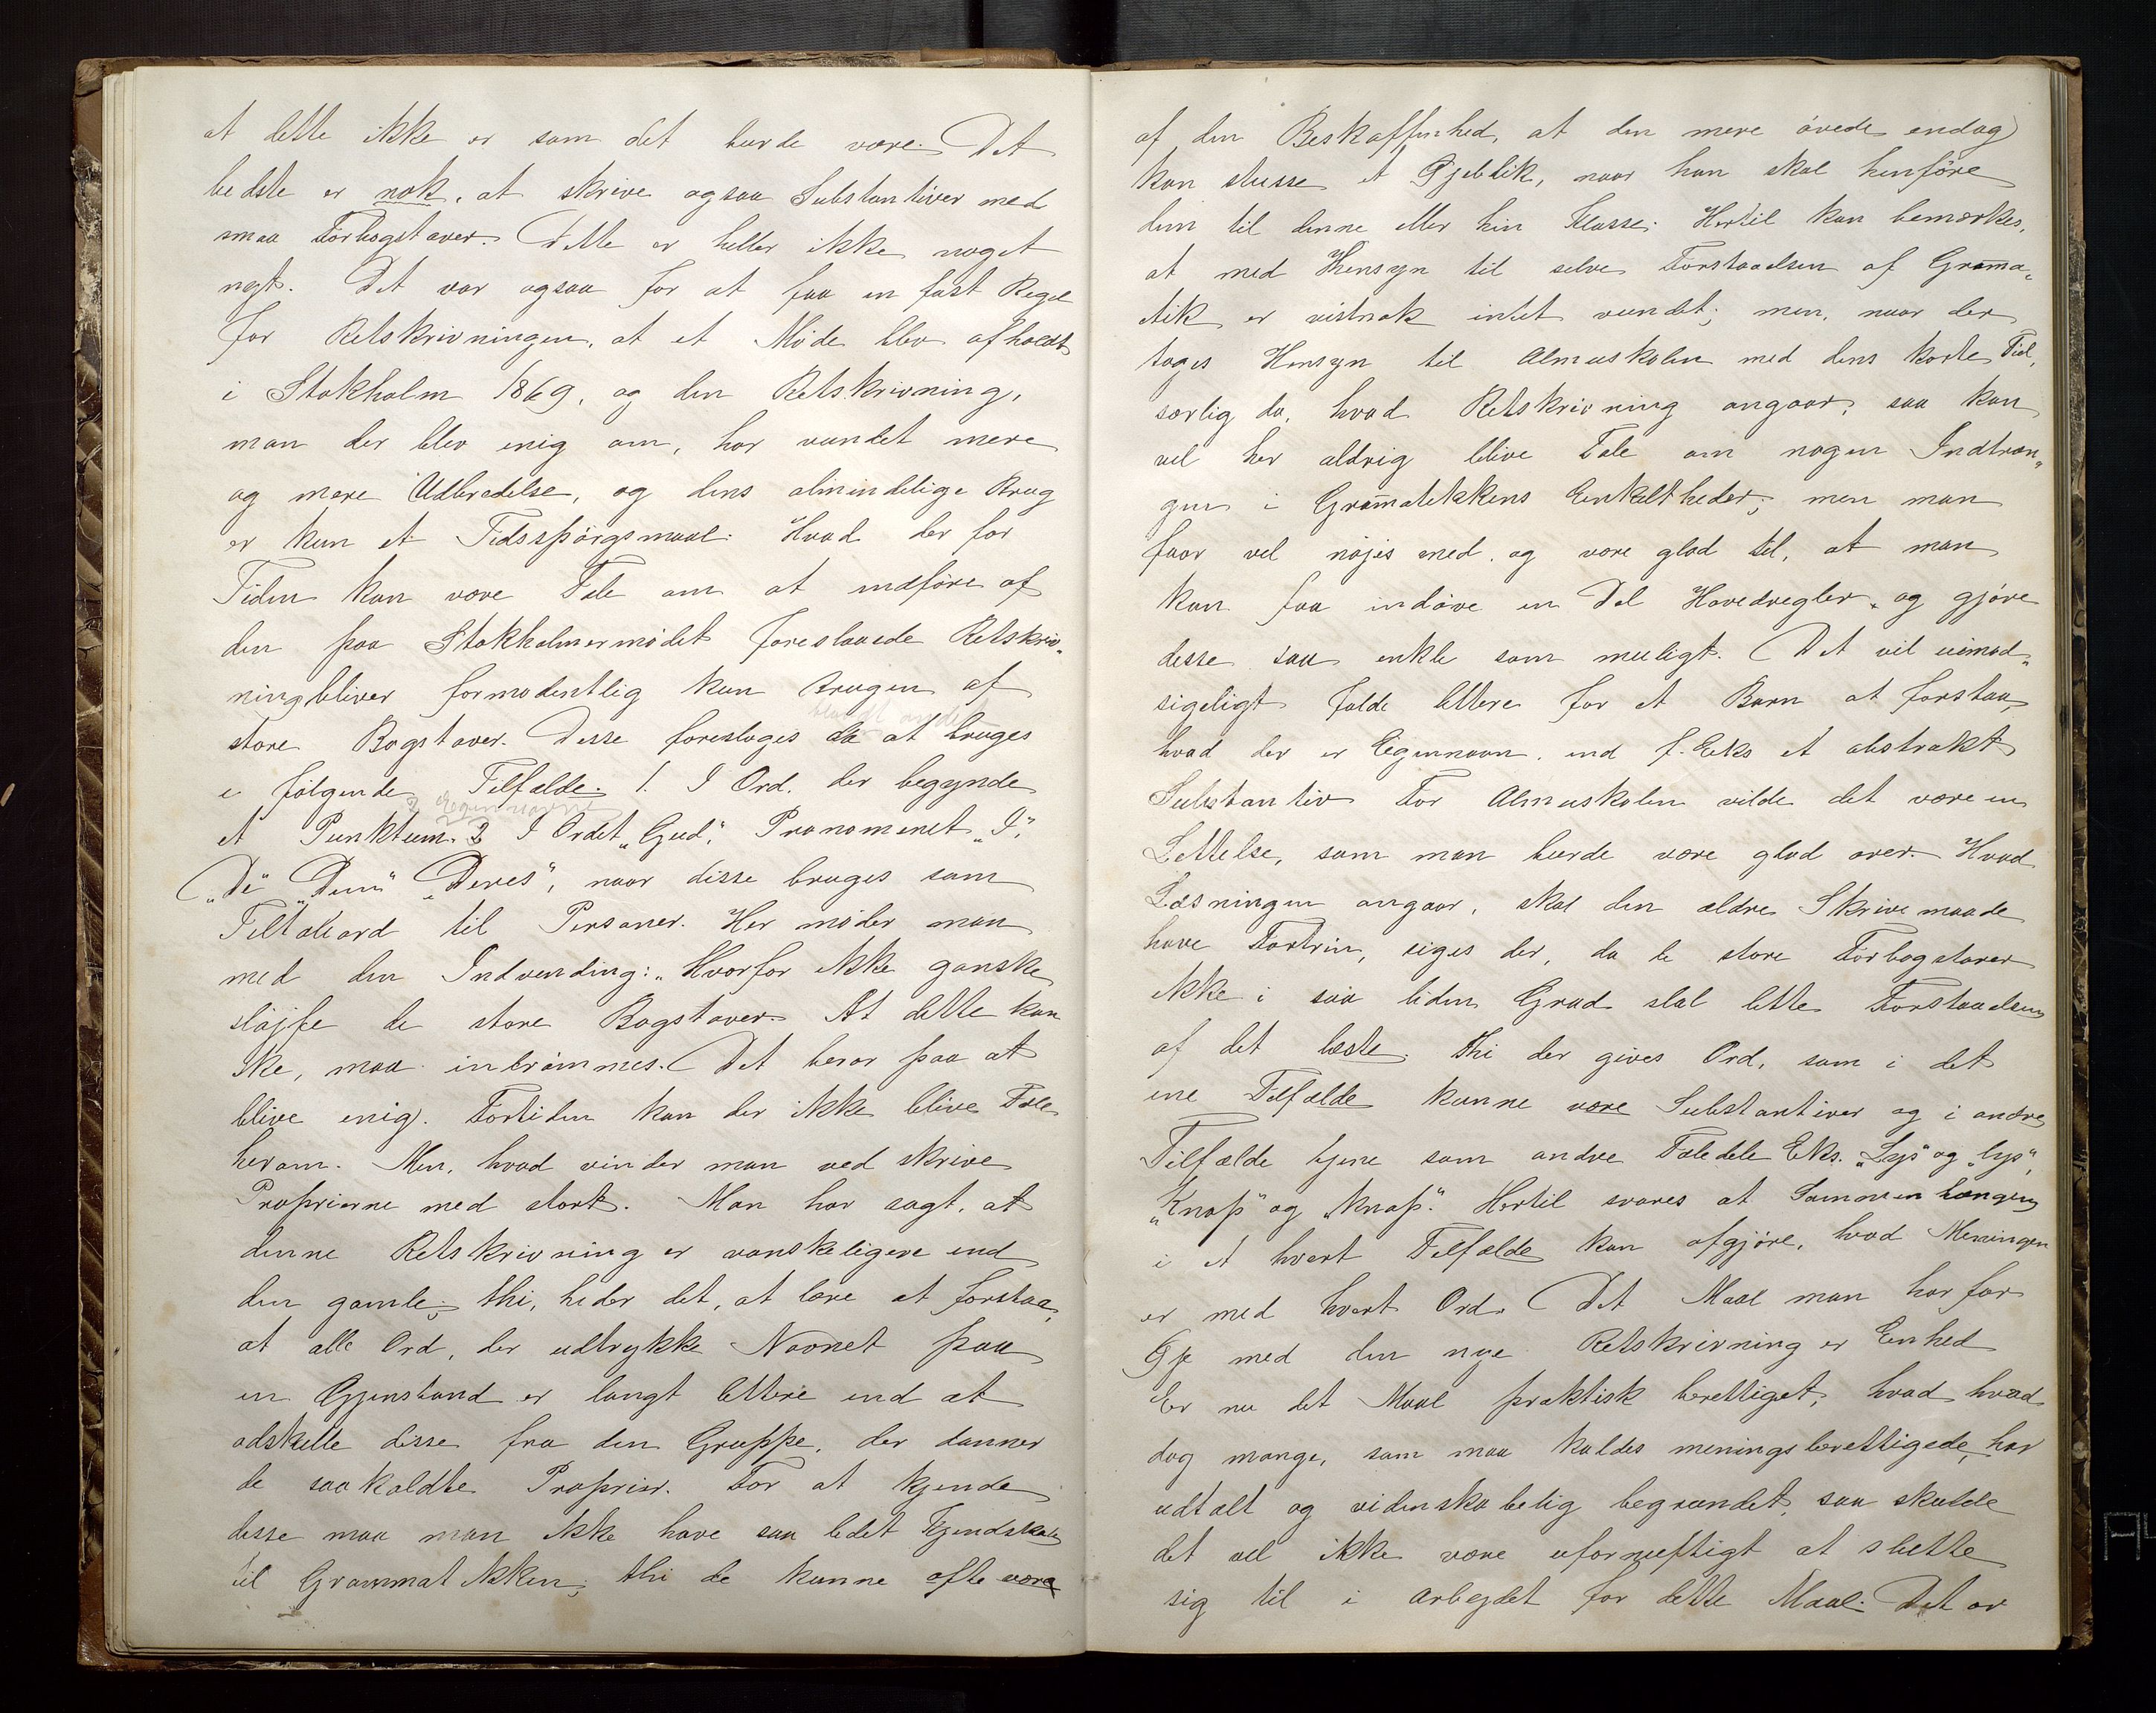 at dette ikke er som det burde være. Det
bedste er nok, at skrive ogsaa Substantiver med
smaa Forbogstaver. Dette er heller ikke noget
nyt. Det var ogsaa for at faa en fast Regel
for Retskrivningen, at et Møde blev afholdt
i Stokholm 1869, og den Retskrivning,
man der blev enig om, har vundet mere
og mere Udbredelse, og dens almindelige Brug
er kun et Tidsspörgsmaal. Hvad der for
Tiden kan være Tale om at indføre af
den paa Stokholmermødet foreslaaede Retskriv„
ning bliver formodentlig kun Brugen af
blandt andet
store Bogstaver. Disse foresloges da at bruges
i følgende Tilfælde. 1. I Ord. der begynde
2 Egennavne
et Punktum. 3 I Ordet „Gud“, Pronomenet „I“,
„De“ „Dem“ „Deres“, naar disse bruges som
Tiltaleord til Personer. Her møder man
med den Indvending: „Hvorfor ikke ganske
sløjfe de store Bogstaver. At dette kan
ske, maa indrømmes. Det beror paa at
blive enig. Fortiden kan der ikke blive Tale
herom. Men, hvad vinder man ved skrive
Proprierne med stort. Man har sagt, at
denne Retskrivning er vanskeligere end
den gamle; thi, heder det, at lære at forstaa,
at alle Ord, der udtrykke Navnet paa
en Gjenstand er langt lettere end at
adskille disse fra den Gruppe, der danner
de saakaldte Proprier. For at kjende
disse maa man ikke have saa lidet Kjendskab
til Grammatikken; thi de kunne ofte være
af den Beskaffenhed, at den mere øvede endog
kan studse et Øjeblik, naar han skal henføre
dem til denne eller hin Klasse. Hertil kan bemærkes,
at med Hensyn til selve Forstaaelsen af Grama„
tik er vistnok intet vundet; men, naar der
tages Hensyn til Almuskolen med dens korte Tid,
særlig da, hvad Retskrivning angaar, saa kan
vel her aldrig blive Tale om nogen Indtræn„
gen i Gramatikkens Enkeltheder; men man
faar vel nøjes med, og være glad til, at man
kan faa indøve en Del Hovedregler, og gjøre
desse saa enkle som muligt. Det vil uimod„
sigeligt falde lettere for et Barn at forstaa,
hvad der er Egennavn, end f. Eks et abstrakt
Substantiv For Almuskolen vilde det være en
Lettelse, som man burde være glad over. Hvad
Læsningen angaar, skal den ældre Skrivemaade
have Fortrin, siges der, da de store Forbogstaver
ikke i saa liden Grad skal lette Forstaaelsen
af det læste. Thi der gives Ord, som i det
ene Tilfælde kunne være Substantiver og i andre
Tilfælde tjene som andre Taledele Eks. „Lys“ og „lys“,
„Knap“ og „knap“. Hertil svares at Sammenhængen
i et hvert Tilfælde kan afgjøre, hvad Meningen
er med hvert Ord. Det Maal man har for
Øje med den nye Retskrivning er Enhed
Er nu det Maal praktisk berettiget, hvad hvad
dog mange, som maa kaldes meningsberettigede, har
udtalt og videnskabelig begrundet, saa skulde
det vel ikke være ufornuftigt at slutte
sig til i Arbejdet for dette Maal. Det er